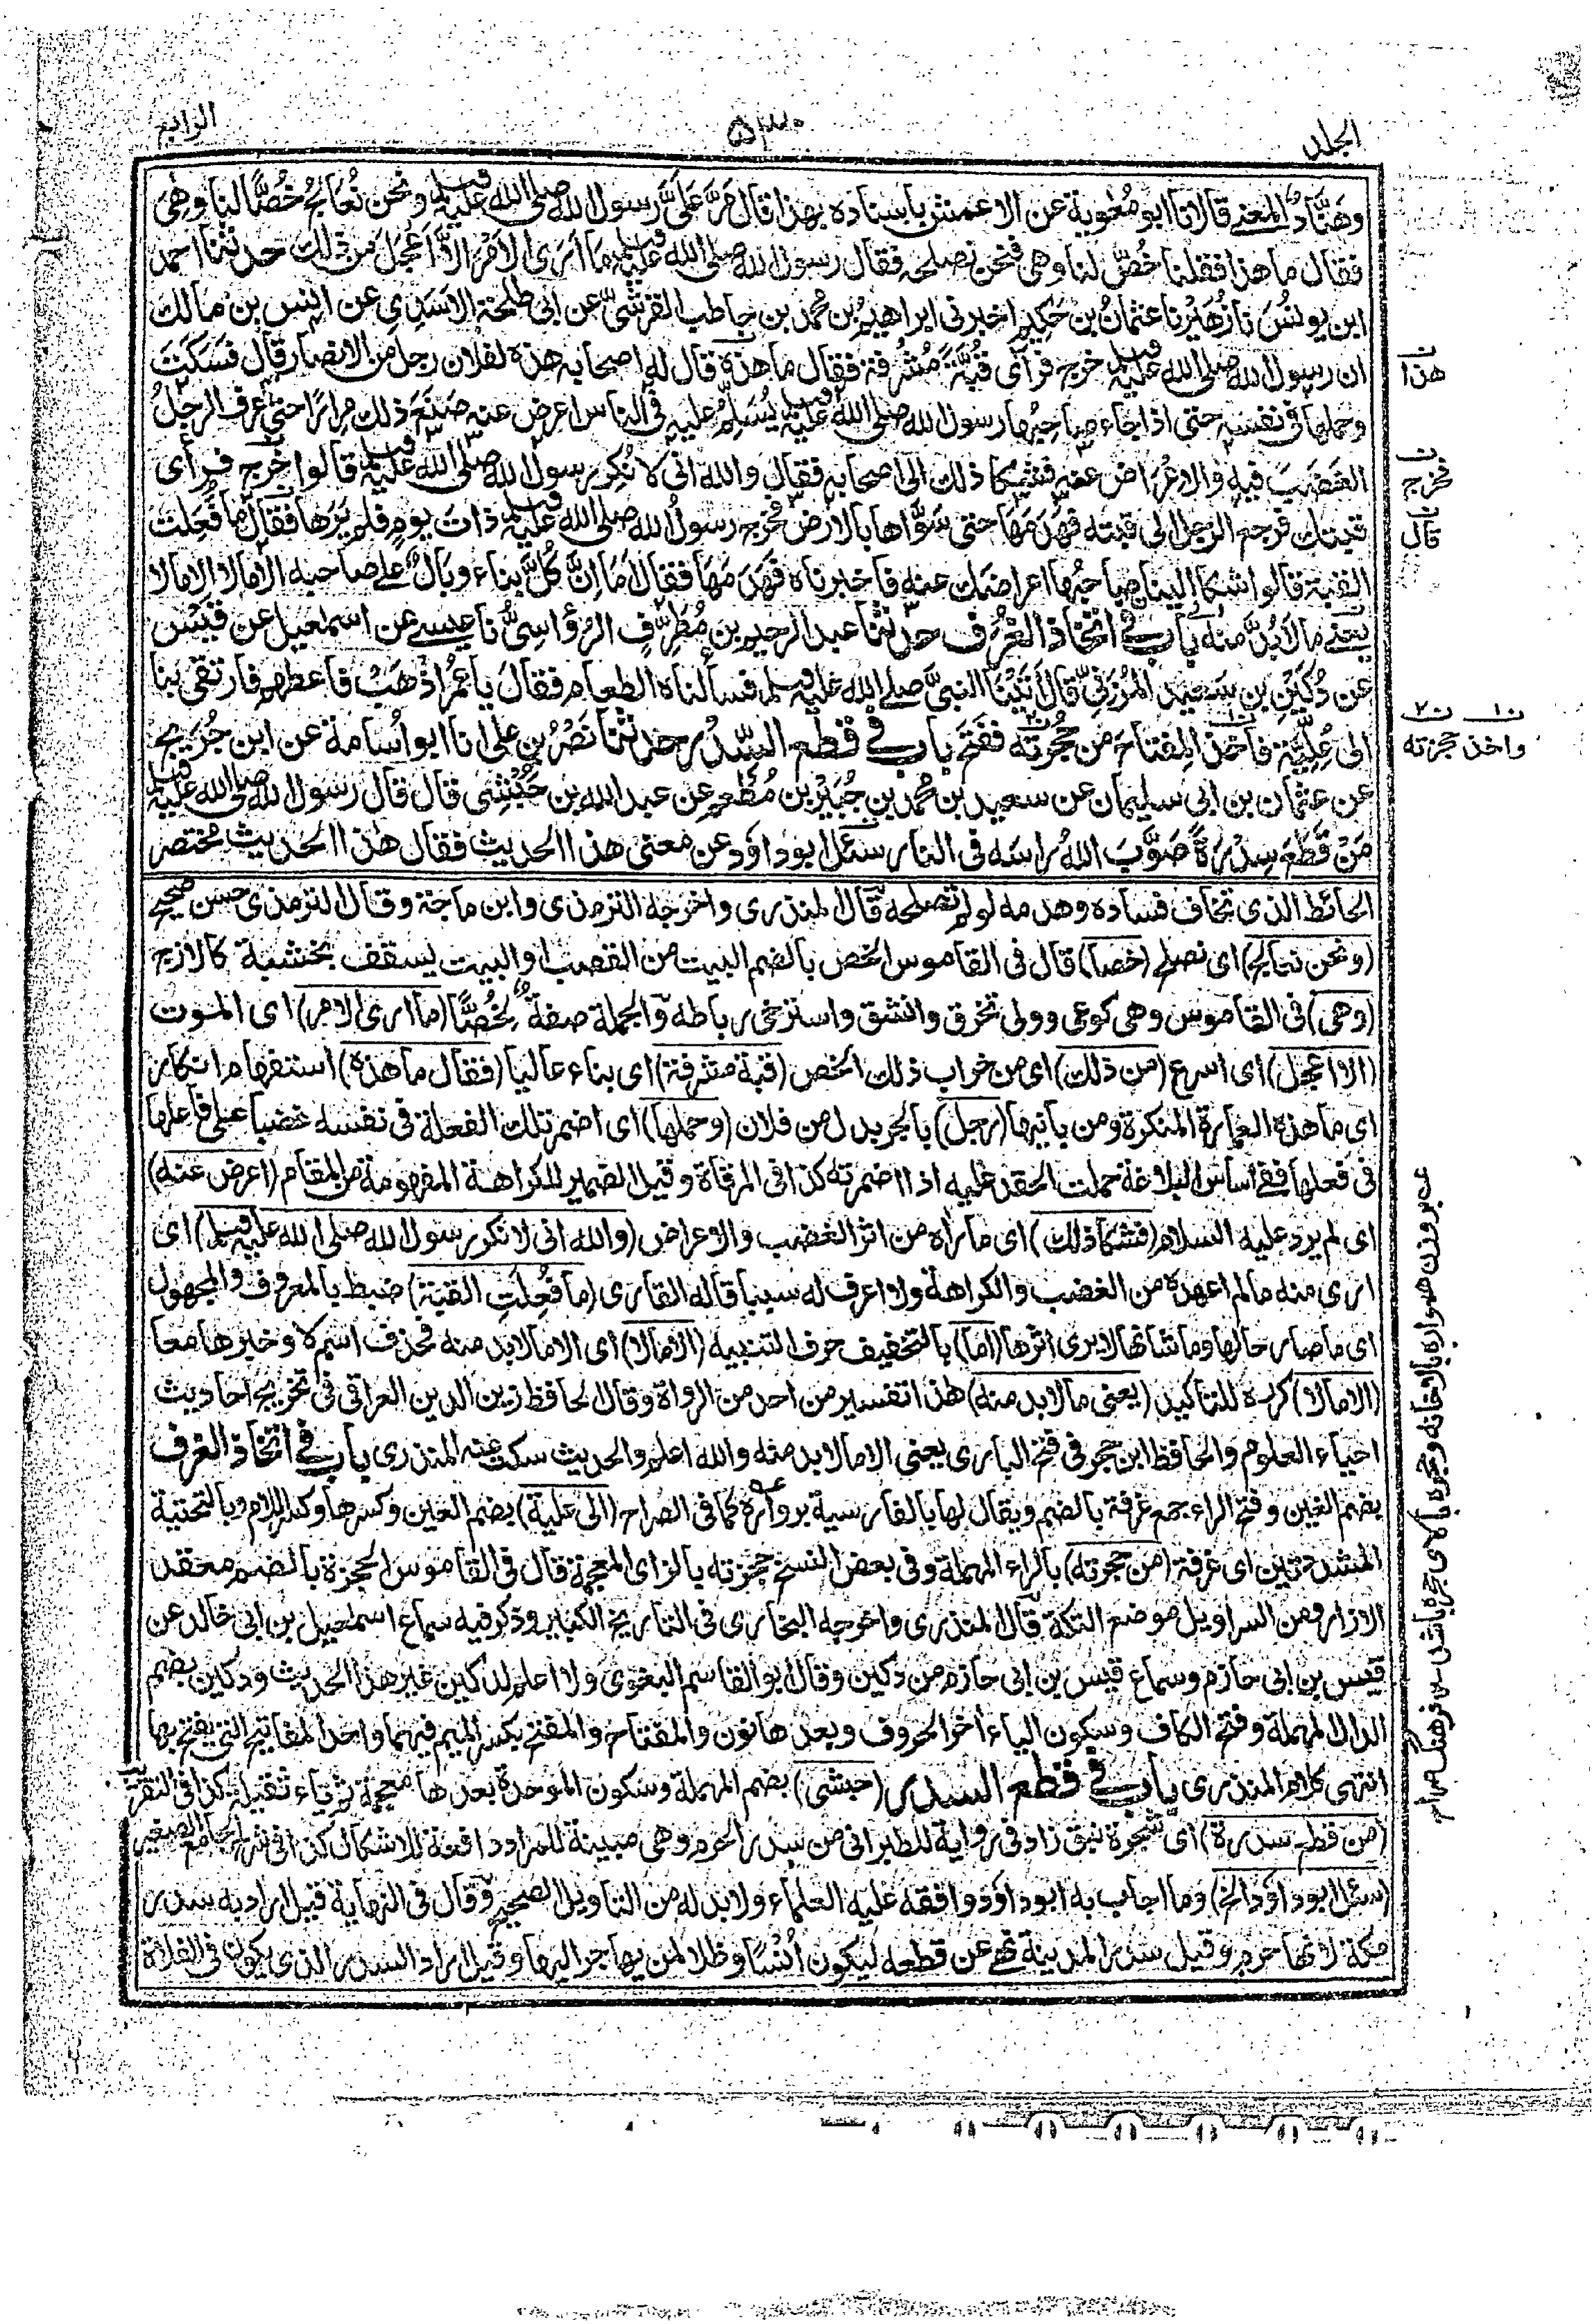 الجلد
۵۳۰
الرابع
وهَنَّادٌ المعنے قالا نا ابو مُعٰوية عن الاعمش باسناده بهذا قال مَرَّ عَلَيَّ رسول الله صلى الله عليه وسلم ونحن نُعَالِجُ خُصًّا لنا وَهِىَ
فقال ما هذا فقلنا خُصٌّ لنا وهى فنحن نصلحه فقال رسول الله صلى الله عليه وسلم ما أَرَى الاَمْرَ اِلَّا اَعْجَلَ من ذلك حدثنا احمد
ابن يونُسَ نا زُهَيْرٌ نا عثمانُ بن حَكِيمٍ اخبرنى ابراهِيْمُ بن محمد بن حاطب القرشىُّ عن ابى طلحة الاَسَدِىِ عن انس بن مالك
ان رسول الله صلى الله عليه وسلم خرج فرأى قُبَّةً مُشْرِفة فقال ما هذه قال له اصحابه هذه لفلان رجل من الانصار قال فسَكَتَ
وحملها فى نفسه حتى اذا جاء صاحبُها رسول الله صلى الله عليه وسلم يُسَلِّمُ عليه فى الناس اعرض عنه صَنَعَ ذلك مِرارًا حتى عرف الرجلُ
الغَضَبَ فيه والاعْرَاضَ عنه فشكا ذلك الى اصحابه فقال والله انى لاُنْكِرُ رسول الله صلى الله عليه وسلم قالوا خَرج فرأى
قبتك فرجع الرجل الى قبته فهَدَمَهَا حتى سَوَّاها بالارض فخرج رسولُ الله صلى الله عليه وسلم ذاتَ يومٍ فلم يَرَها فقال ما فَعَلت
القبة قالوا شكا الينا صاحبُها اعراضَك عنه فاخبرناه فهَدَمَهَا فقال اَمَا اِنَّ كُلَّ بناء وبالٌ على صاحبه الا مالا الا مالا
يعنے مالابُدَّ منه باب فے اتخاذ الغُرَف حدثنا عبد الرحيم بن مُطَرِّفٍ الرُؤاسِىُّ نا عيسے عن اسمعيل عن قيس
عن دُكَيْنِ بن سعيد المُزَنِىِّ قال اَتَيْنَا النبىَّ صلے الله عليه وسلم فسألناه الطعام فقال يا عُمَرُ اذْهَبْ فاعطهم فارتقى بنا
الى عُلِيَّة فاخذ المِفتاحَ من حُجْرَتِه ففَتَح باب فے قطع السِّدْر حدثنا نَصْرُ بن على انا ابو اُسامة عن ابن جُرَيجٍ
عن عثمان بن ابى سليمان عن سعيد بن محمد بن جُبَيْرِ بن مُطْعِمٍ عن عبد الله بن حُبْشِىٍ قال قال رسول الله صلى الله عليه وسلم
مَنْ قَطَعَ سِدْرَةً صَوَّبَ اللهُ راسَه فى النار سئل ابوداؤد عن معنى هذا الحديث فقال هٰذا الحديث مُختصر
الحائط الذى تخاف فساده وهدمه لو لم تصلحه قال المنذرى واخرجه الترمذى وابن ماجة وقال الترمذى حسن صحيح
(ونحن نعالج) اى نصلح (خصا) قال فى القاموس الخص بالضم البيت من القصب او البيت يسقف بخشبة كالازج
(وهى) فى القاموس وهى كوعى وولى تخرق وانشق واسترخى رباطه والجملة صفة لِخُصًّا (ما ارى الامر) اى الموت
(الا اعجل) اى اسرع (من ذلك) اى من خراب ذلك الخص (قبة مشرفة) اى بناء عاليا (فقال ما هذه) استفهام انكار
اى ما هذه العمارة المنكرة ومن بانيها (رجل) بالجر بدل من فلان (وحملها) اى اضمر تلك الفعلة فى نفسه غضبا على فاعلها
فى فعلها ففے اساس البلاغة حملت الحقد عليه اذا اضمرته كذا فى المرقاة وقيل الضمير للكراهة المفهومة من المقام (اعرض عنه)
اى لم يرد عليه السلام (فشكا ذلك) اى ما رأه من اثر الغضب والاعراض (والله انى لانكر رسول الله صلى الله عليه وسلم) اى
ارى منه ما لم اعهده من الغضب والكراهة ولا اعرف له سببا قاله القارى (ما فُعِلَتِ القبة) ضبط بالمعروف والمجهول
اى ما صار حالها وما شانها لا يرى اثرها (اما) بالتخفيف حرف التنبيه (الا مالا) اى الا مالا بد منه فحذف اسم لا وخبرها معا
(الا مالا) كرره للتاكيد (يعنى مالا بد منه) هذا تفسير من احد من الرواة وقال الحافظ زين الدين العراقى فى تخريج احاديث
احياء العلوم والحافظ ابن حجر فى فتح البارى يعنى الا مالا بد منه والله اعلم والحديث سكت عنه المنذرى باب فے اتخاذ الغرف
بضم الغين وفتح الراء جمع غرفة بالضم ويقال لها بالفارسية بروارة كما فى الصراح (الى علية) بضم العين وكسرها وكسر اللام وبالتحتية
المشددتين اى غرفة (من حجرته) بالراء المهملة وفى بعض النسخ حجزته بالزاى المعجمة قال فى القاموس الحجزة بالضم معقد
الازار ومن السراويل موضع التكة قال المنذرى واخرجه البخارى فى التاريخ الكبير وذكر فيه سماع اسمعيل بن ابى خالد عن
قيس بن ابى حازم وسماع قيس بن ابى حازم من دكين وقال ابوالقاسم البغوى ولا اعلم لدكين غير هذا الحديث ودكين بضم
الدال المهملة وفتح الكاف وسكون الياء أخر الحروف وبعدها نون والمفتاح والمفتح بكسر الميم فيهما واحد المفاتيح التى يفتح بها
انتهى كلام المنذرى باب فے قطع السدر (حبشى) بضم المهملة وسكون الموحدة بعدها معجمة ثم ياء ثقيلة كذا فى التقريب
(من قطع سدرة) اى شجرة نبق زاد فى رواية للطبرانى من سدر الحرم وهى مبينة للمراد دافعة للاشكال كذا فى شرح الجامع الصغير
(سئل ابوداؤد الخ) وما اجاب به ابوداؤد وافقه عليه العلماء ولا بد له من التاويل الصحيح وقال فى النهاية قيل اراد به سدر
مكة لانها حرم وقيل سدر المدينة نهے عن قطعه ليكون اُنْسًا وظلا لمن يهاجر اليها وقيل اراد السدر الذى يكون فى الفلاة
ن
هذا
ن
فخرج
ن
قال
ن١ ن٢
واخذ حجزته